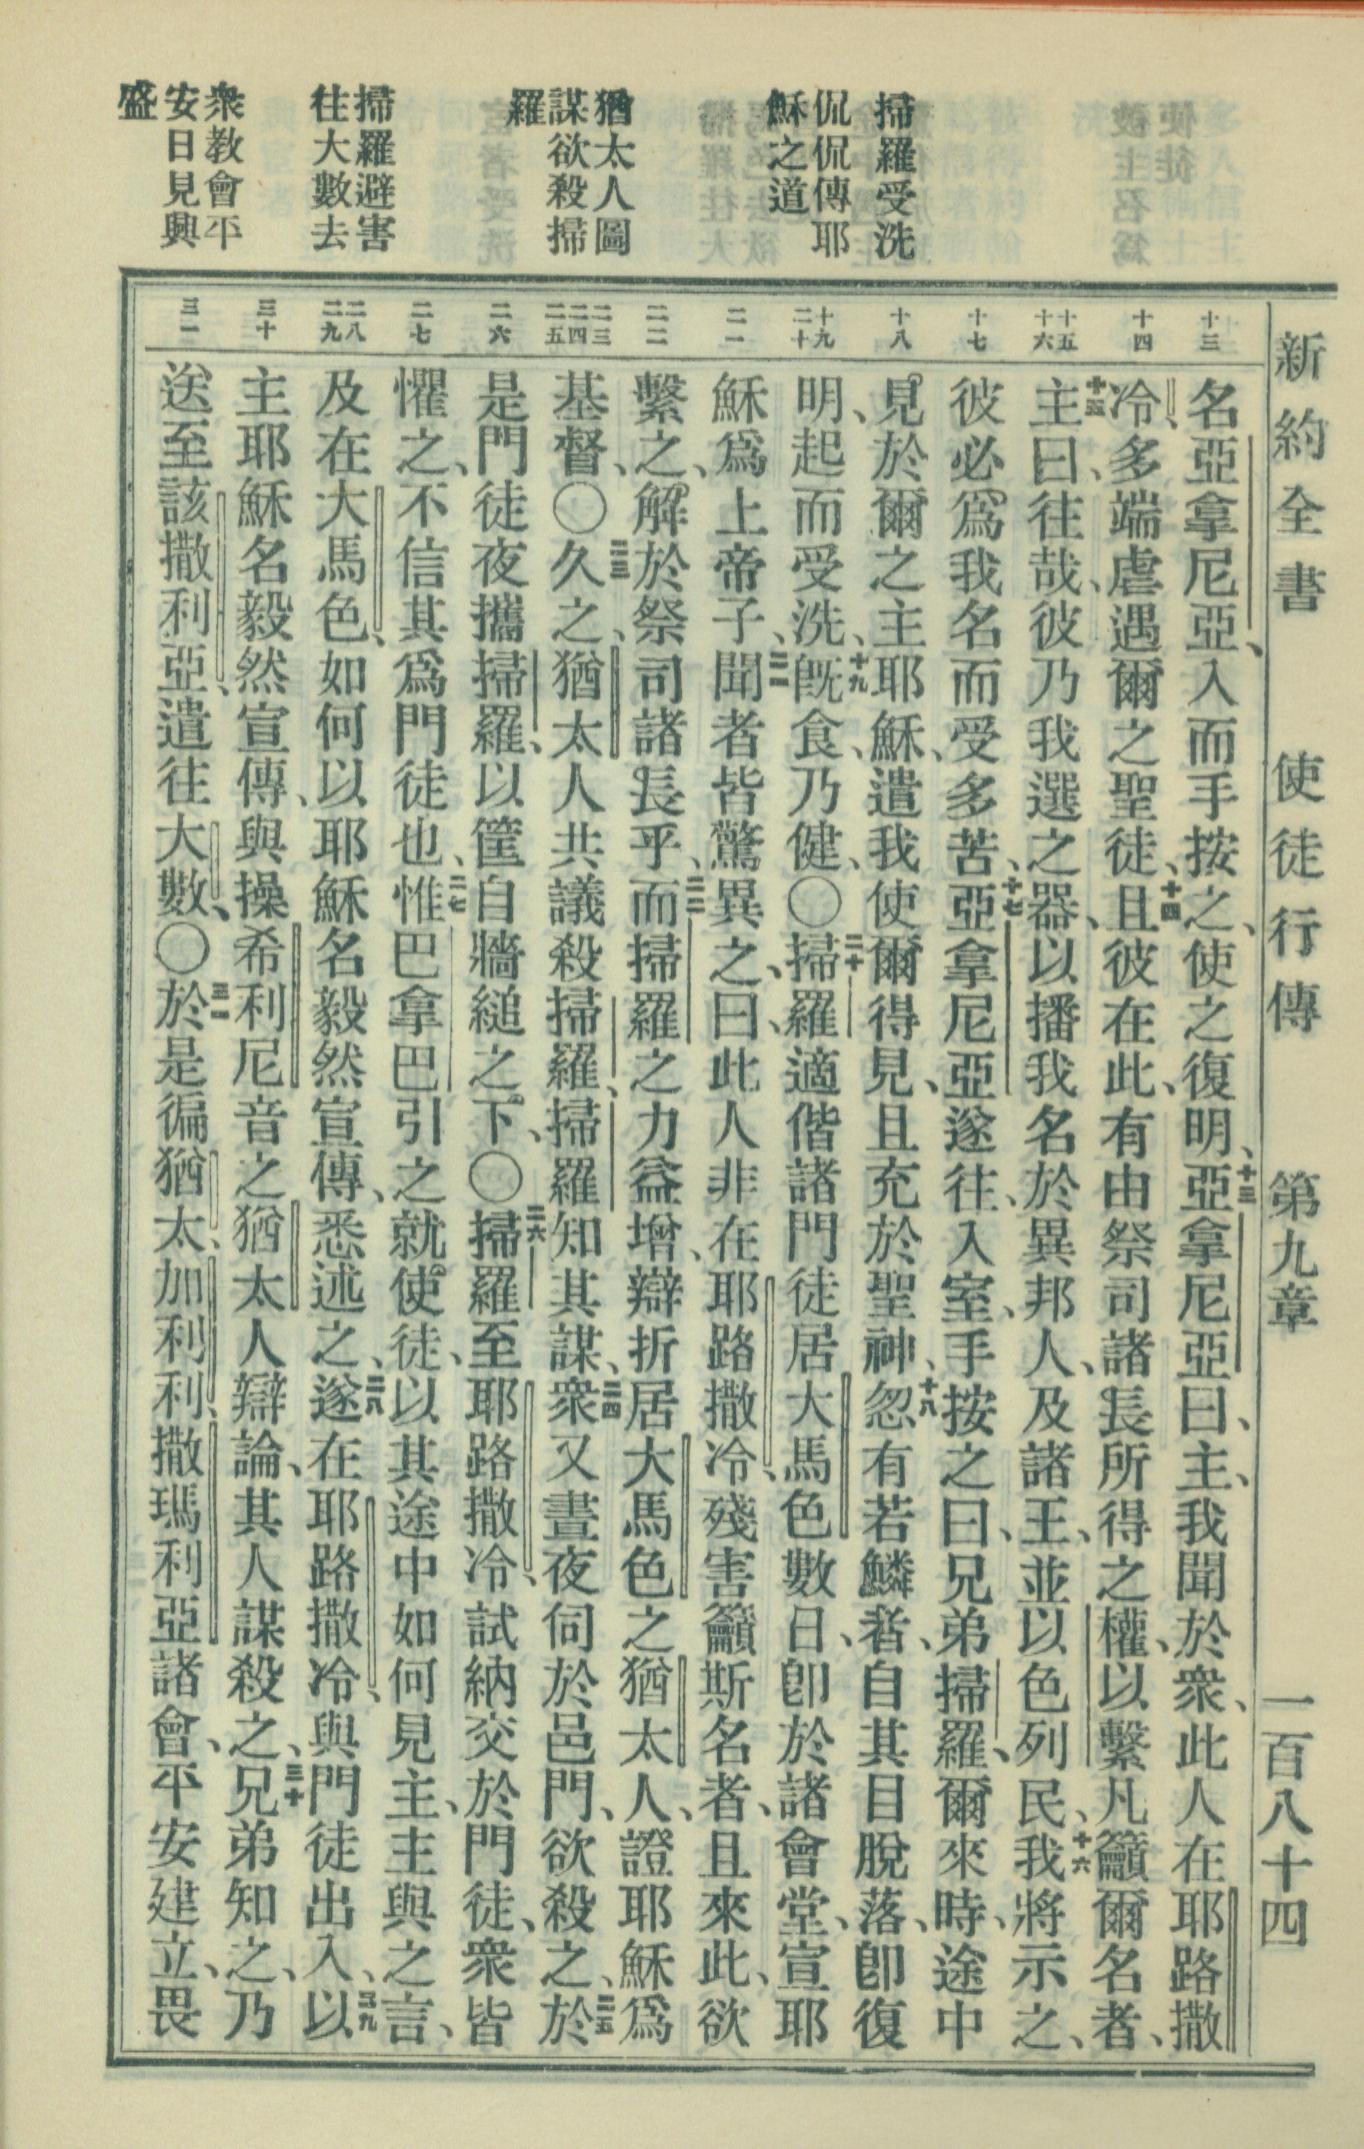 新約全書　使徒行傳　第九章　一百八十四
掃羅受洗
侃侃傳耶
穌之道
猶太人圖
謀欲殺掃
羅
掃羅避害
往大數去
衆教會平
安日見興
盛
十三
十四
十五
十六
十七
十八
十九
二十
二一
二二
二三
二四
二五
二六
二七
二八
二九
三十
三一
名亞拿尼亞、入而手按之、使之復明、十三亞拿尼亞曰、主、我聞於衆、此人在耶路撒
冷、多端虐遇爾之聖徒、十四且彼在此、有由祭司諸長所得之權、以繫凡籲爾名者、
十五主曰、往哉、彼乃我選之器、以播我名於異邦人、及諸王、並以色列民、十六我將示之、
彼必爲我名而受多苦、十七亞拿尼亞遂往、入室、手按之曰、兄弟掃羅、爾來時、途中
見於爾之主耶穌、遣我使爾得見、且充於聖神、十八忽有若鱗者、自其目脫落、卽復
明、起而受洗、十九旣食、乃健、〇二十掃羅適偕諸門徒居大馬色數日、卽於諸會堂、宣耶
穌爲上帝子、二一聞者皆驚異之、曰、此人非在耶路撒冷、殘害籲斯名者、且來此、欲
繫之、解於祭司諸長乎、二二而掃羅之力益增、辯折居大馬色之猶太人、證耶穌爲
基督、〇二三久之、猶太人共議殺掃羅、掃羅知其謀、二四衆又晝夜伺於邑門、欲殺之、二五於
是門徒夜攜掃羅、以筐自牆縋之下、〇二六掃羅至耶路撒冷、試納交於門徒、衆皆
懼之、不信其爲門徒也、二七惟巴拿巴引之就使徒、以其途中如何見主、主與之言、
及在大馬色、如何以耶穌名毅然宣傳、悉述之、二八遂在耶路撒冷、與門徒出入、二九以
主耶穌名毅然宣傳、與操希利尼音之猶太人辯論、其人謀殺之、三十兄弟知之、乃
送至該撒利亞、遣往大數、〇三一於是徧猶太、加利利、撒瑪利亞諸會、平安建立、畏